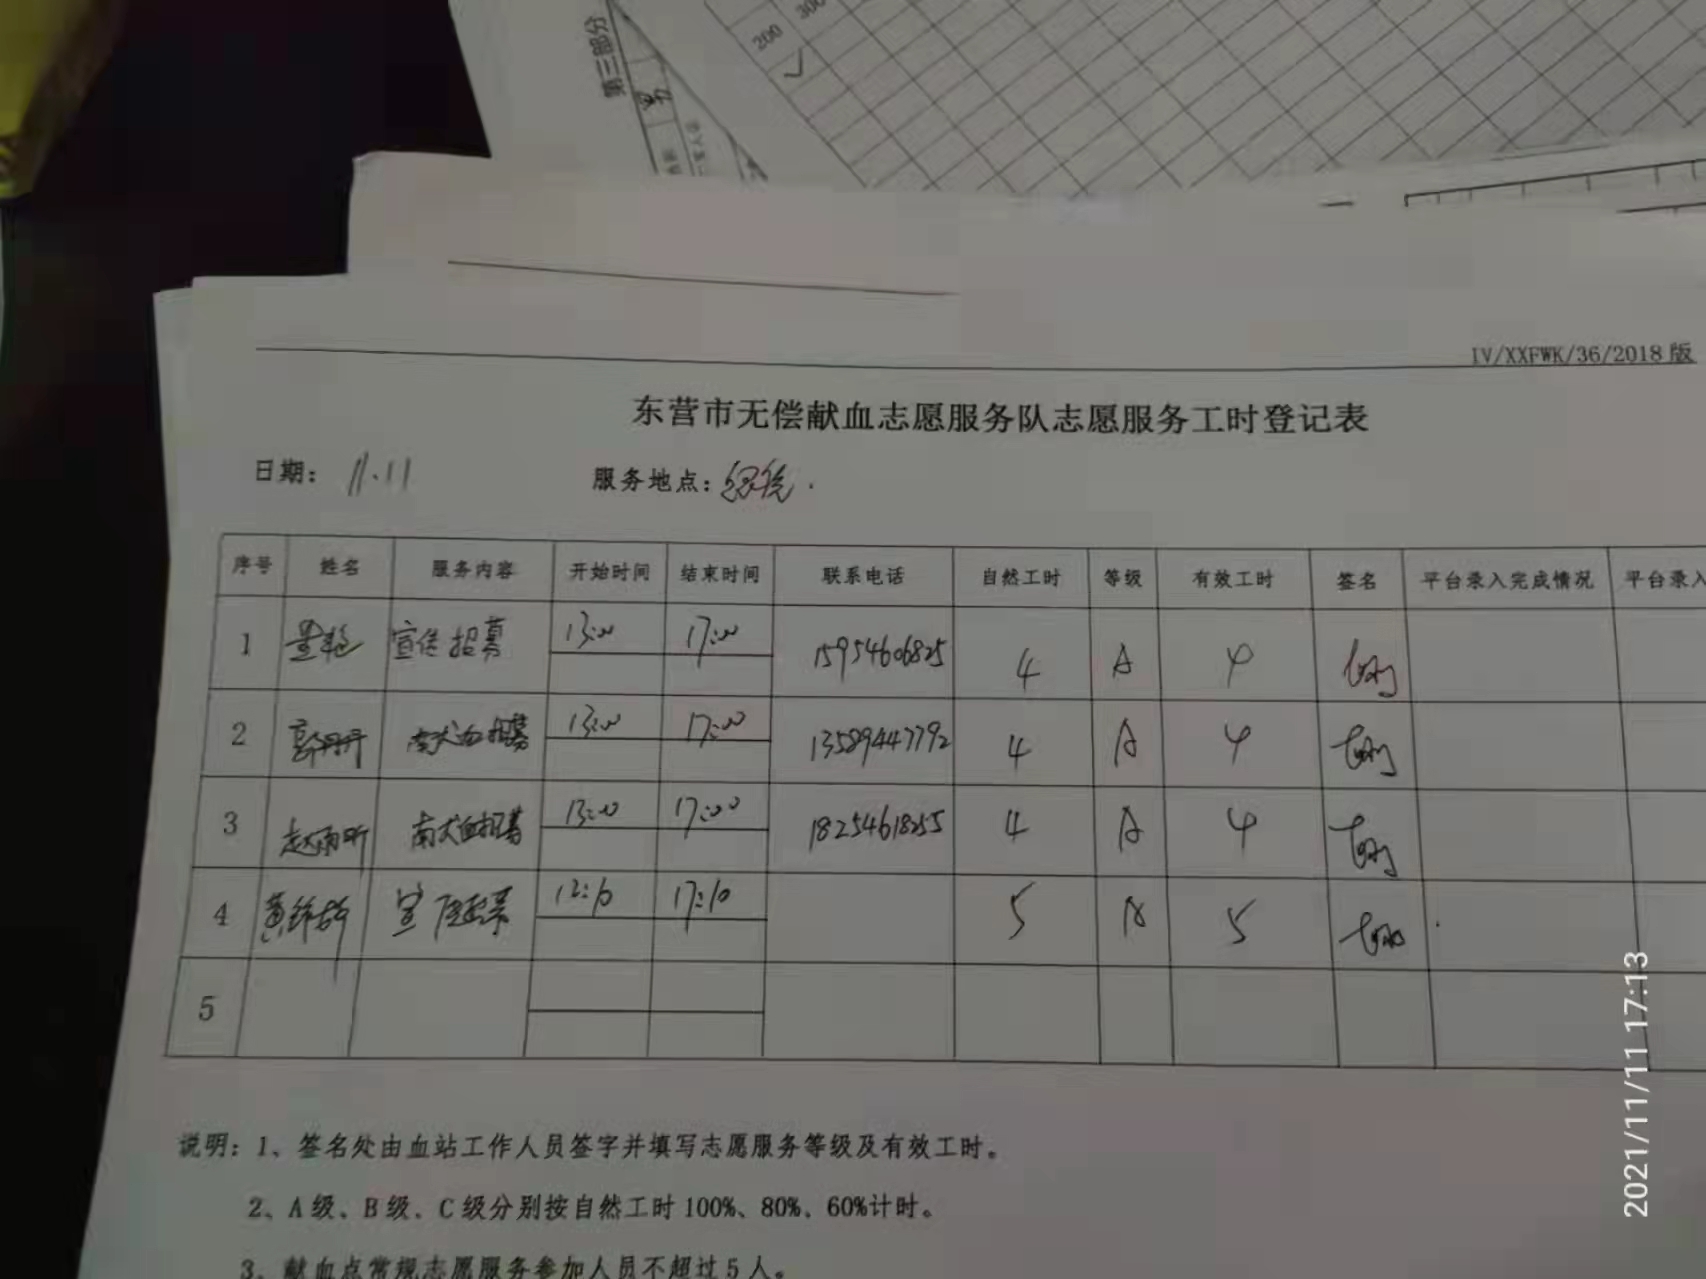 200
300
第三部分
男
IV/XXFWK/36/2018版
东营市无偿献血志愿服务队志愿服务工时登记表
日期: 11.11 服务地点:
序号 姓名 服务内容 开始时间 结束时间 联系电话 自然工时 等级 有效工时 签名 平台录入完成情况 平台录入
1 宣传招募 13:00 17:00 15954606825 4 A 4
2 郭丹丹 献血招募 13:00 17:00 13589447792 4 A 4
3 赵雨昕 献血招募 13:00 17:00 18254618255 4 A 4
4 12:10 17:10 5 A 5
5
说明:1、签名处由血站工作人员签字并填写志愿服务等级及有效工时。
2、A级、B级、C级分别按自然工时100%、80%、60%计时。
3、献血点常规志愿服务参加人员不超过5人。
2021/11/11 17:13